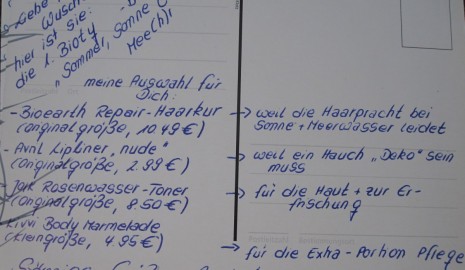 Liebe
Wusch
hier ist sie:
die 1. Bioty
"Sommer, Sonne &
Mee(h)r
meine Auswahl für
Dich:
- Bioearth Repair-Haarkur
(originalgröße, 10.49 €)
→ weil die Haarpracht bei
Sonne + Meerwasser leidet
- Avril Lipliner "nude"
(originalgröße, 2.99 €)
→ weil ein Hauch "Deko" sein
muss
Rosenwasser-Toner
(originalgröße, 8.50 €)
→ für die Haut + zur Er-
frischung
Body Marmelade
(kleingröße, 4.95 €)
→ für die Extra-Portion Pflege